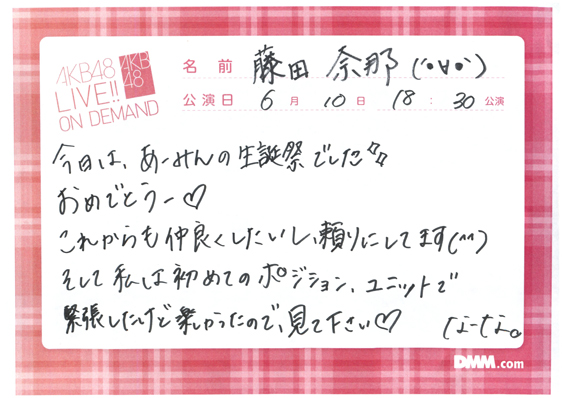 AKB48
LIVE!!
ON DEMAND
AKB
48
名前 藤田 奈那 (´•∀•`)
公演日 6月 10日 18:30公演
今日は、あーみんの生誕祭でした
おめでとうー♡
これからも仲良くしたいし、頼りにしてます(^^)
そして私は初めてのポジション、ユニットで
緊張したけど楽しかったので、見て下さい♡
なーなー。
DMM.com